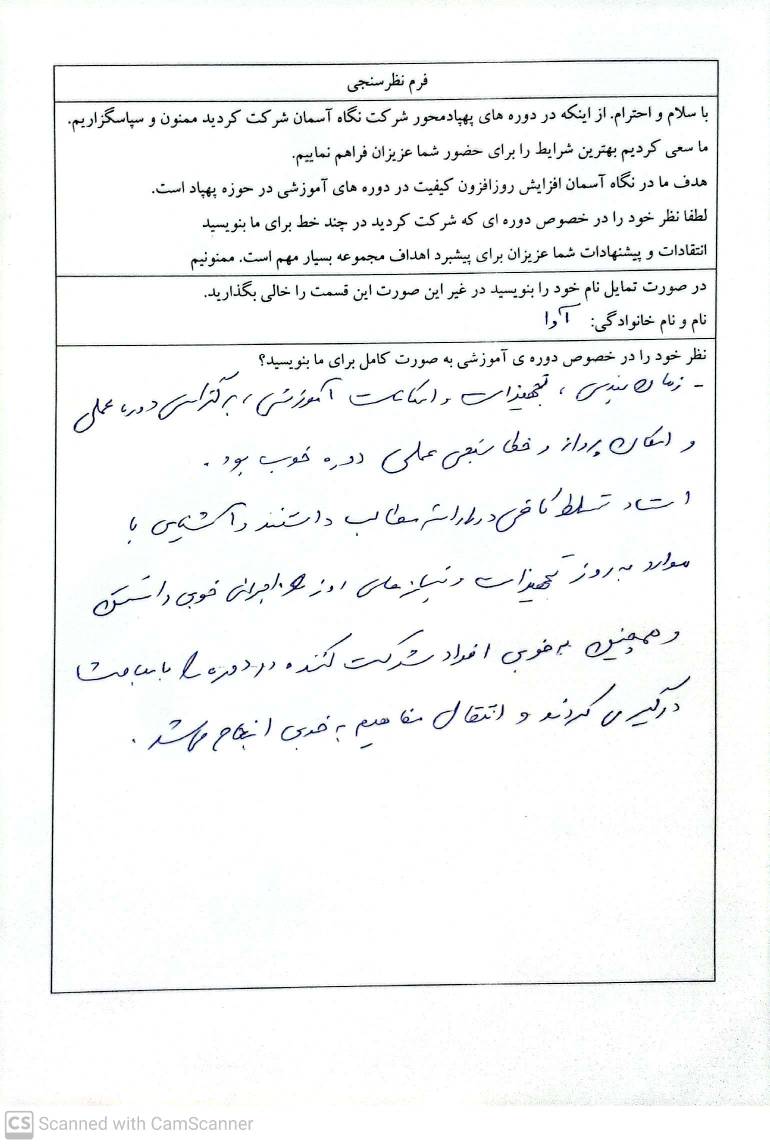 فرم نظرسنجی
با سلام و احترام. از اینکه در دوره های پهپادمحور شرکت نگاه آسمان شرکت کردید ممنون و سپاسگزاریم.
ما سعی کردیم بهترین شرایط را برای حضور شما عزیزان فراهم نماییم.
هدف ما در نگاه آسمان افزایش روزافزون کیفیت در دوره های آموزشی در حوزه پهپاد است.
لطفا نظر خود را در خصوص دوره ای که شرکت کردید در چند خط برای ما بنویسید
انتقادات و پیشنهادات شما عزیزان برای پیشبرد اهداف مجموعه بسیار مهم است. ممنونیم
در صورت تمایل نام خود را بنویسید در غیر این صورت این قسمت را خالی بگذارید.
نام و نام خانوادگی: آوا
نظر خود را در خصوص دوره ی آموزشی به صورت کامل برای ما بنویسید؟
- زمان بندی ، تجهیزات و امکانات آموزشی ، دوره عملی
و امکان پرواز و عملی دوره خوب بود .
استاد تسلط کافی در ارائه مطالب داشتند و آشنایی با
موارد به روز تجهیزات و نیازهای روز اجرائی خوبی داشتند
و همچنین به خوبی افراد شرکت کننده در دوره را با مباحث
درگیر می کردند و انتقال مفاهیم به خوبی انجام می شد .
CS Scanned with CamScanner